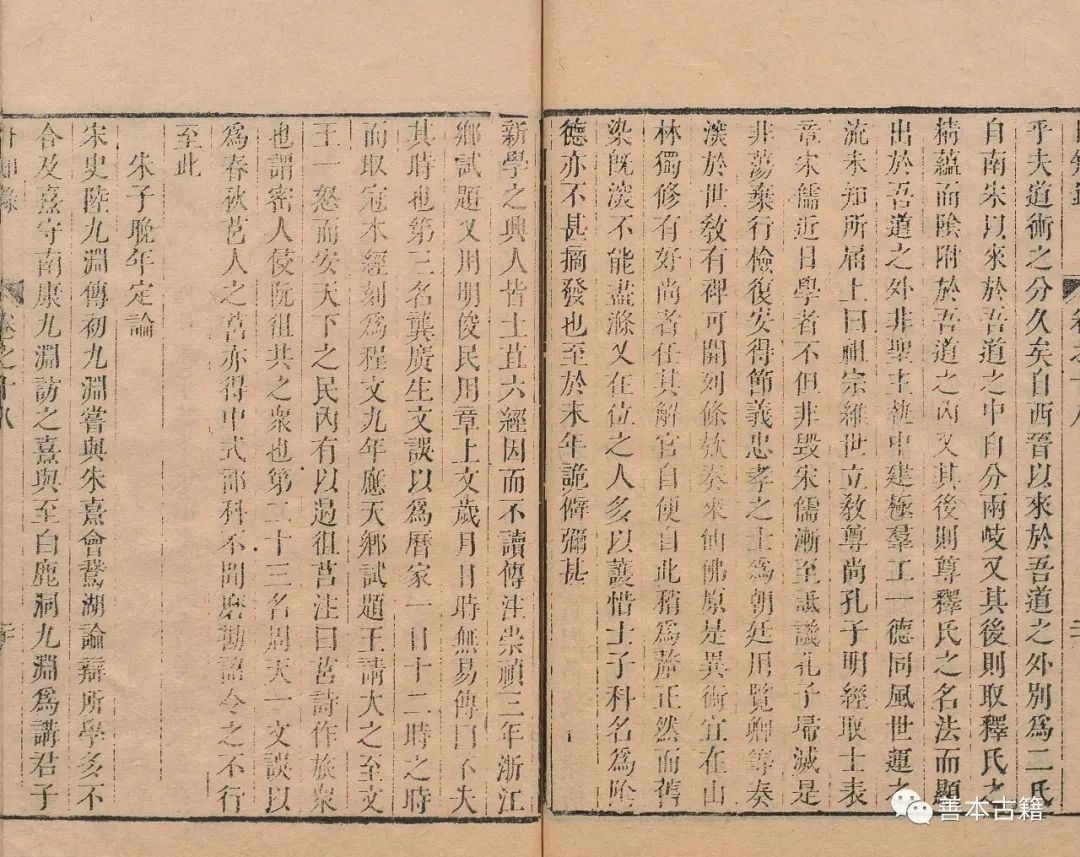 日知錄 卷之十八
乎夫道術之分久矣自西晉以來於吾道之外別爲二氏
自南宋以來於吾道之中自分兩歧又其後則取釋氏之
精蘊而陰附於吾道之內又其後則尊釋氏之名法而顯
出於吾道之外非聖主執中建極羣工一德同風世運之
流未知所屆上曰祖宗維世立教尊尚孔子明經取士表
章宋儒近日學者不但非毀宋儒漸至詆譏孔子掃滅是
非蕩棄行檢復安得節義忠孝之士爲朝廷用覽卿等奏
深於世教有裨可開列條欵奏來仙佛原是異術宜在山
林獨修有好尚者任其解官自便自此稍爲釐正然而舊
染既深不能盡滌又在位之人多以護惜士子科名爲陰
德亦不甚摘發也至於末年詭僻彌甚
新學之興人皆土苴六經因而不讀傳注崇禎三年浙江
鄉試題乂用明俊民用章上文歲月日時無易傳曰不失
其時也第三名龔廣生文誤以爲曆家一日十二時之時
而取冠本經刻爲程文九年應天鄉試題王請大之至文
王一怒而安天下之民內有以遏徂莒注曰莒詩作旅衆
也謂密人侵阮徂共之衆也第二十三名周天一文誤以
爲春秋莒人之莒亦得中式部科不聞磨勘詔令之不行
至此
朱子晚年定論
宋史陸九淵傳初九淵嘗與朱熹會鵞湖論辯所學多不
合及熹守南康九淵訪之熹與至白鹿洞九淵爲講君子
日知錄 卷之十八
善本古籍